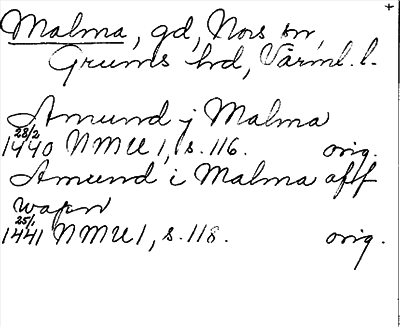 Malma, gd, Nors sn,
Grums hd, Värml. l.
Amund j Malma
28/2
1440 NMU 1, s. 116. orig.
Amund i Malma aff
wapn
25/1
1441 NMU 1, s. 118. orig.